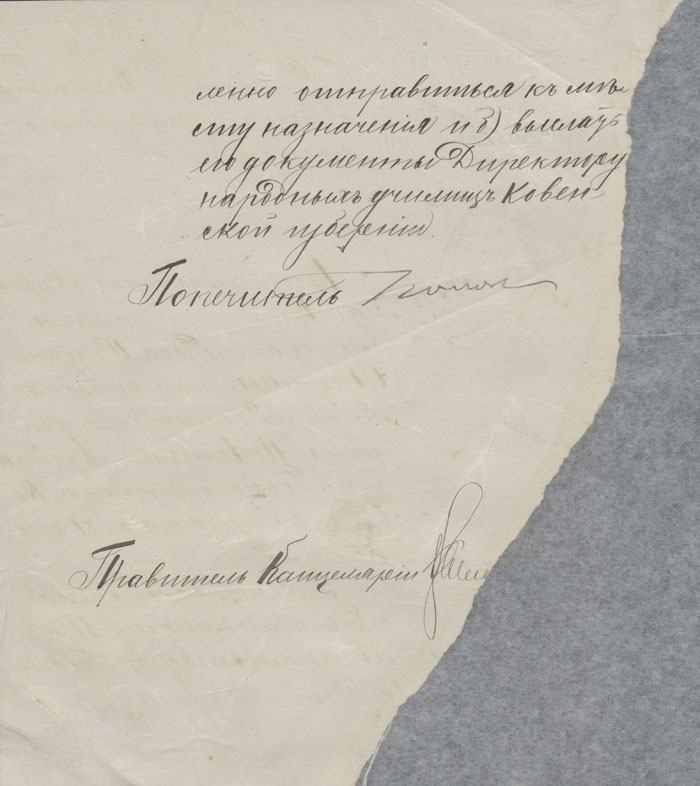 ленно отправиться къ мѣ-
сту назначенія и в) выслать
мо документы Директору
народныхъ училищъ Ковен-
ской губерніи.
Попечитель
Правитель Канцеляріи